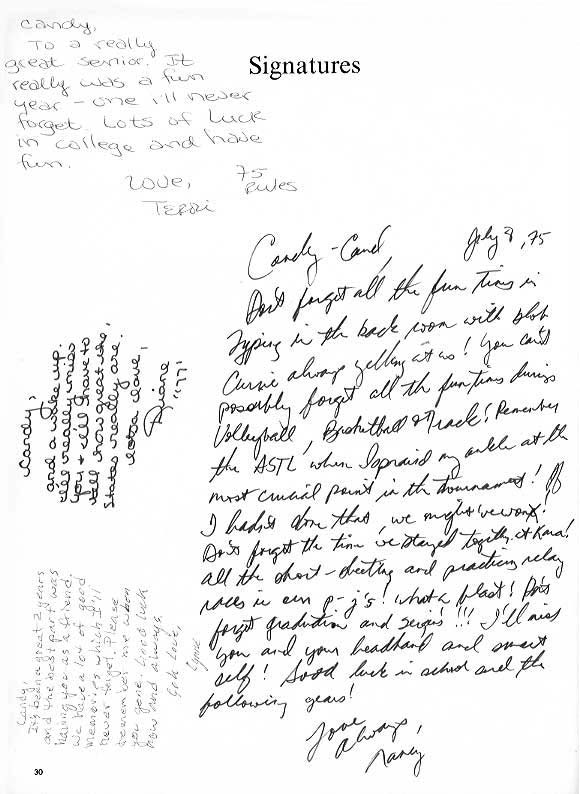 Candy,
To a really
great senior. It
really was a fun
year - one I'll never
forget Lots of Luck
in college and have
fun.
Love, 75
Rules
TERRI
Signatures
July 8, 75
Candy - Cane,
Don't forget all the fun times in
typing in the back room with blob
Currie always yelling at us! You can't
possibly forget all the fun times during
Volleyball, Basketball & Track! Remember
the ASTL when I spraid my ankle at the
most crucial point in the tournament! If
I hadn't done that, we might've won!
Don't forget the time we stayed together at
all the short-sheeting and practicing relay
races in our p-j's! What a blast! Don't
forget graduation and !!! I'll miss
you and your headband and smart
self! Good luck in school and the
following years!
Love
Always,
Nancy
Candy,
and a wake up.
I'll really miss
you & I'll have to
tell how great the
States really are.
Lotsa love,
Diane
"77"
Candy,
It's been a great 2 years
and the best part was
having you as a friend.
We have a lot of good
memories which I'll
never forget. Please
remember me when
you gone. Good luck
now and always.
Love,
Lynne
30